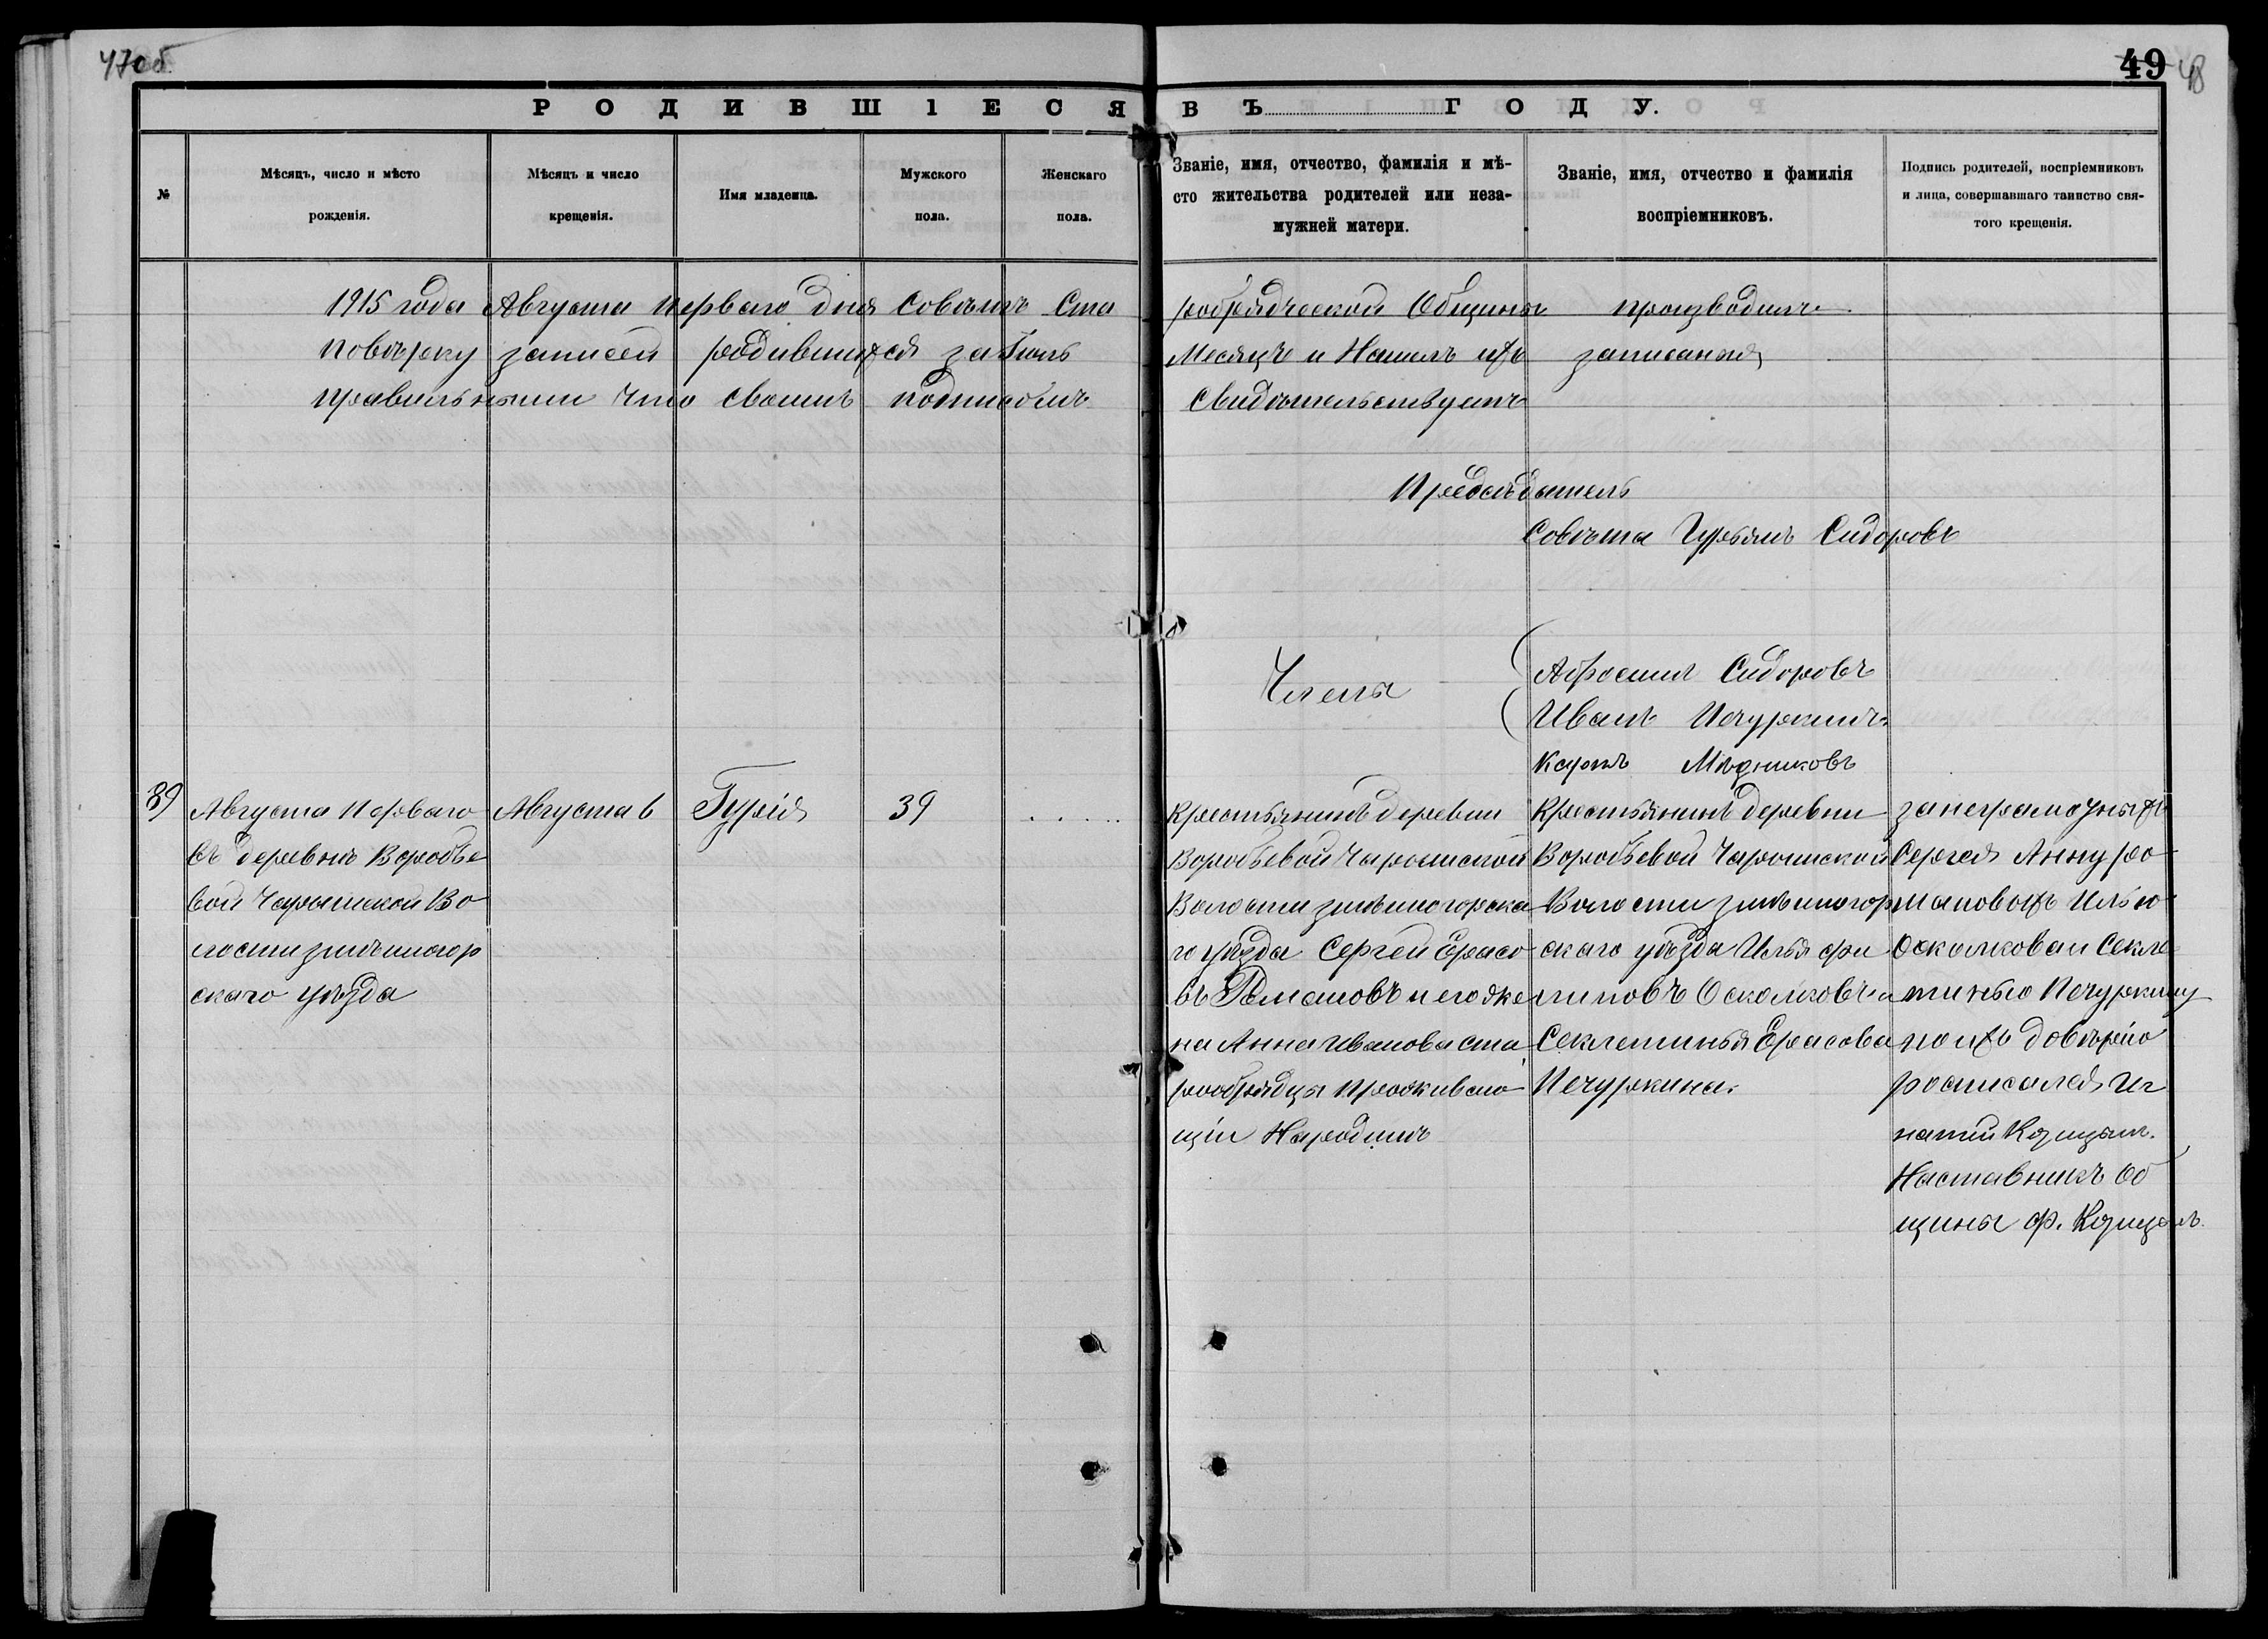 47об.
49 48
РОДИВШІЕСЯ ВЪ ГОДУ.
№
Мѣсяцъ, число и мѣсто
рожденія.
Мѣсяцъ и число
крещенія.
Имя младенца.
Мужского
пола.
Женскаго
пола.
Званіе, имя, отчество, фамилія и мѣ-
сто жительства родителей или неза-
мужней матери.
Званіе, имя, отчество и фамилія
воспріемниковъ.
Подпись родителей, воспріемниковъ
и лица, совершавшаго таинство свя-
того крещенія.
1915 года Августа перваго дня Совѣтъ Ста
рообрядческой Общины производилъ
повѣрку записей родившихся за Іюль
Месяцъ и Нашелъ ихъ записання
правильными Что своимъ подписомъ
Свидѣтельствуетъ
Председатель
Совѣта Гурьянъ Сидоровъ
Члены
Афросимъ Сидоровъ
Иванъ Печуркинъ
Карпъ Мѣдниковъ
89
Августа Перваго
въ деревнѣ Воробье
вой Чарышской Во
лости змѣиногор
скаго уѣзда
Августа 6
Гурія
39
.....
Крестьянинъ деревни
Воробьевой Чарышской
Волости змѣиногорска
го уѣзда Сергей Ерасо
въ Романовъ и его же
на Анна Иванова ста
рообрядцы проживаю
щіи
Крестьянинъ деревни
Воробьевой Чарышской
Волости змѣиногор
скаго уѣзда Илья фи
липовъ Осколковъ и
Секлетинья Ерасова
Печуркина.
за неграмотныхъ
Сергея Анну ро
мановыхъ Илью
Осколкова и Секле
тинью Печуркину
по ихъ довѣрію
росписался Иг
натий
Наставникъ об
щины ф.